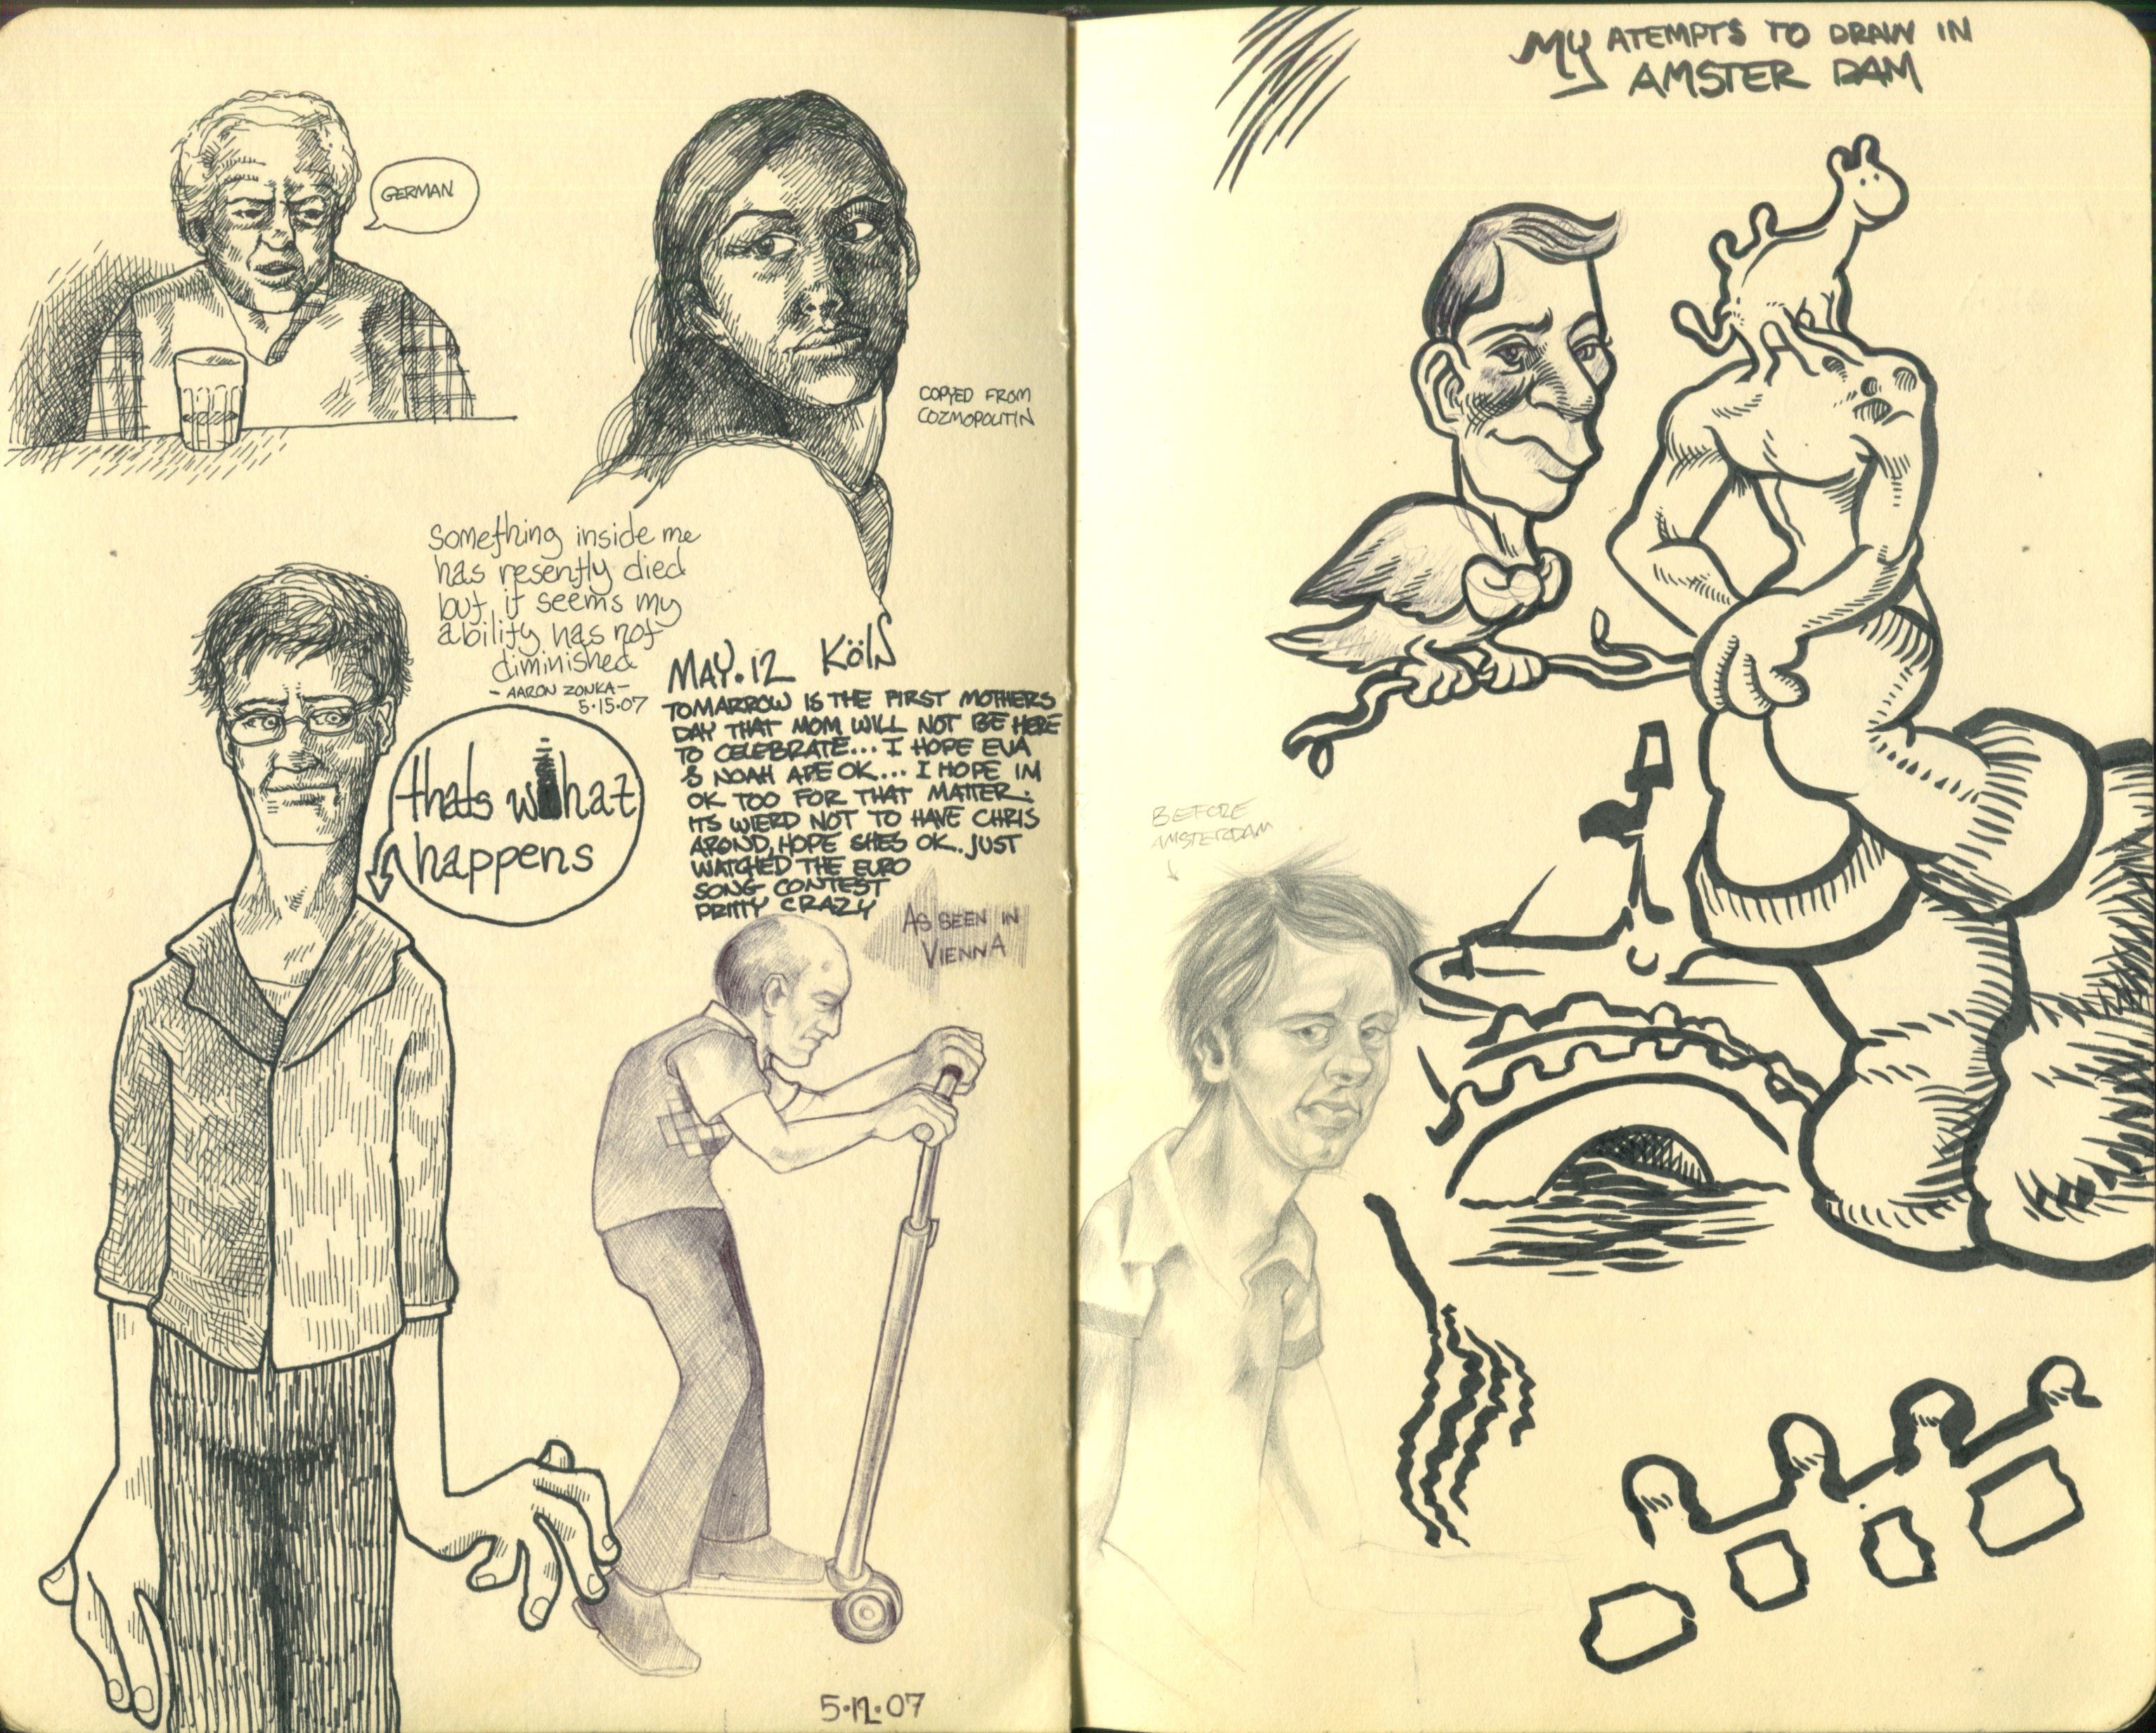 GERMAN
COPYED FROM
COZMOPOLITIN
something inside me
has resently died
but, it seems my
ability has not
diminished
- AARON ZONKA -
5.15.07
MAY.12 KölN
TOMARROW IS THE FIRST MOTHERS
DAY THAT MOM WILL NOT BE HERE
TO CELEBRATE... I HOPE EVA
& NOAH ARE OK... I HOPE IM
OK TOO FOR THAT MATTER.
ITS WIERD NOT TO HAVE CHRIS
AROND, HOPE SHES OK. JUST
WATCHED THE EURO
SONG CONTEST
PRITTY CRAZY
thats what
happens
AS SEEN IN
VIENNA
5.12.07
MY ATEMPTS TO DRAW IN
AMSTER DAM
BEFORE
AMSTERDAM